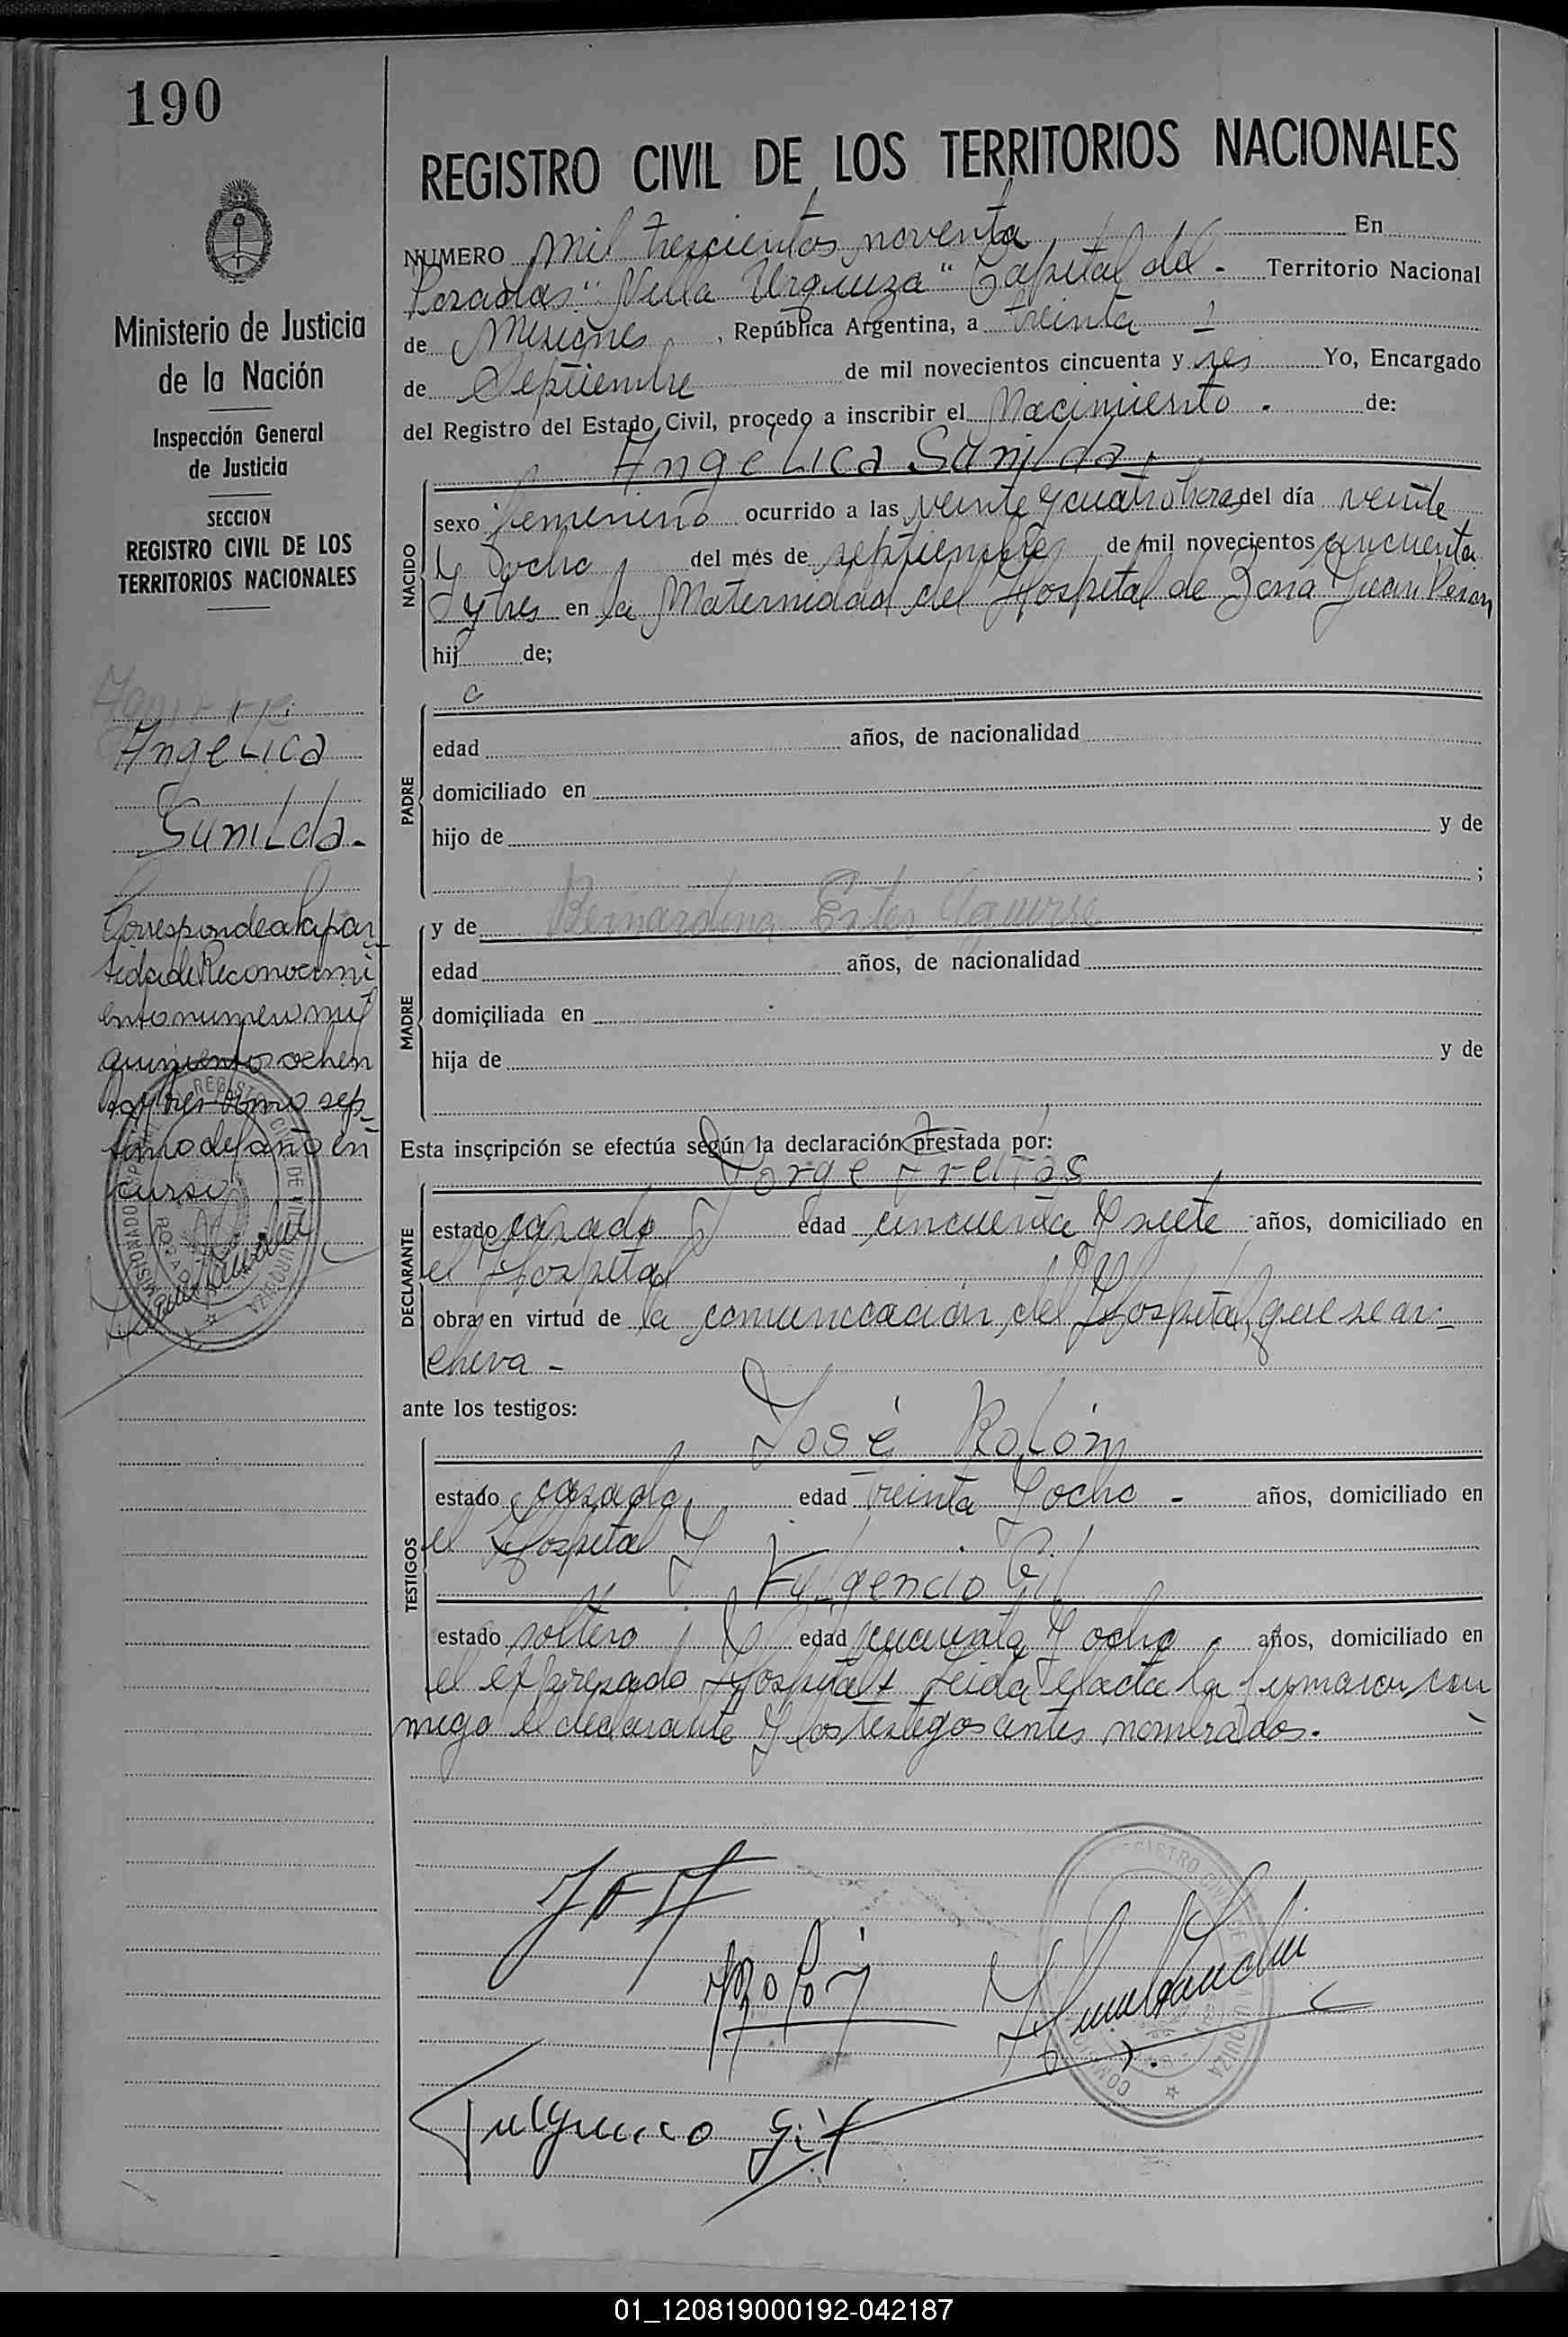 190
REGISTRO CIVIL DE LOS TERRITORIOS NACIONALES
Ministerio de Justicia
de la Nación
Inspección General
de Justicia
SECCION
REGISTRO CIVIL DE LOS
TERRITORIOS NACIONALES
NUMERO mil trescientos noventa En
Posadas "Villa Urquiza" Capital del - Territorio Nacional
de Misiones, República Argentina, a treinta
de Septiembre de mil novecientos cincuenta y tres Yo, Encargado
del Registro del Estado Civil, procedo a inscribir el Nacimiento. de:
Angelica Sunilda.
NACIDO
sexo femenino ocurrido a las veinte y cuatro horas del día veinte
y ocho del més de septiembre de mil novecientos cincuenta
y tres en la Maternidad del Hospital de Zona Juan Peron
hij de;
PADRE
edad años, de nacionalidad
domiciliado en
hijo de y de
;
MADRE
y de Bernardina Ester Aguirre
edad años, de nacionalidad
domiciliada en
hija de y de
Angelica
Sunilda-
Corresponde a la par-
tida de Reconocimi
ento numero mil
quinientos ochen
ta y tres tomo sep-
timo del año en
curso
Esta inscripción se efectúa según la declaración prestada por:
Jorge Freitas
DECLARANTE
estado casado edad cincuenta y siete años, domiciliado en
el Hospital
obra en virtud de la comunicación del Hospital que se ar-
chiva -
ante los testigos:
TESTIGOS
José Rolón
estado casado, edad treinta y ocho - años, domiciliado en
el Hospital y
Fulgencio Gil
estado soltero, edad cuarenta y ocho. años, domiciliado en
el expresado Hospital. Leida el acta la firmaron con
migo el declarante y los testigos antes nombrados.
Rolón
Fulgencio Gil
01_120819000192-042187